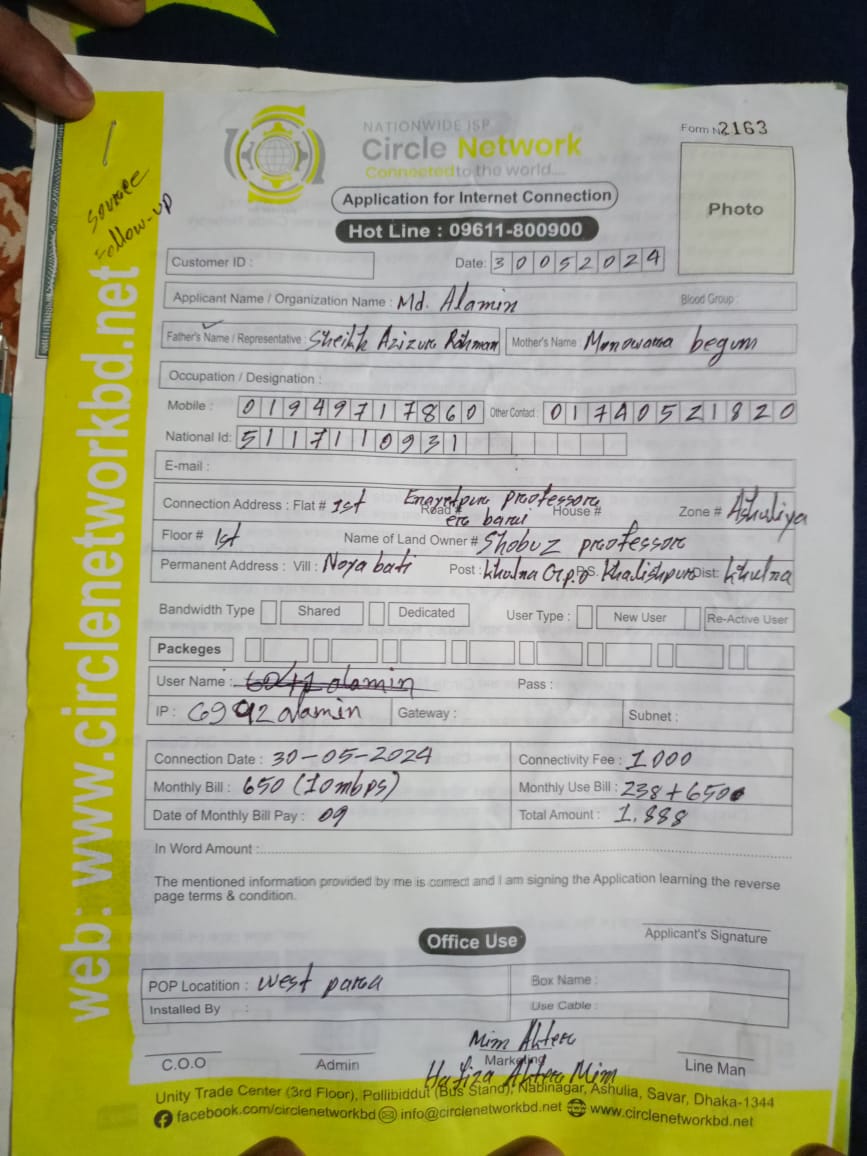 NATIONWIDE ISP
Circle Network
Connected to the world....
Form N 2163
Application for Internet Connection
Hot Line : 09611-800900
Photo
source
Follow-up
web: www.circlenetworkbd.net
Customer ID :
Date: 30052024
Applicant Name / Organization Name : Md. Alamin Blood Group :
Father's Name / Representative : Sheikh Azizur Rahman Mother's Name : Monowara begum
Occupation / Designation :
Mobile : 01949717860 Other Contact : 01740521820
National Id: 5117110931
E-mail :
Connection Address : Flat # 1st Road # Enayetpur professor er bari House # Zone # Ashuliya
Floor # 1st Name of Land Owner # Shobuz professor
Permanent Address : Vill : Noyabati Post : Khulna G.p.o P.S. Khalishpur Dist: Khulna
Bandwidth Type Shared Dedicated User Type : New User Re-Active User
Packeges
User Name : alamin Pass :
IP : 6992alamin Gateway : Subnet :
Connection Date : 30-05-2024 Connectivity Fee : 1000
Monthly Bill : 650 (10mbps) Monthly Use Bill : 238 + 650
Date of Monthly Bill Pay : 09 Total Amount : 1,888
In Word Amount :
The mentioned information provided by me is correct and I am signing the Application learning the reverse
page terms & condition.
Applicant's Signature
Office Use
POP Locatition : west para Box Name :
Installed By : Use Cable :
Mim Akter
C.O.O Admin Marketing Line Man
Hafiza Akter Mim
Unity Trade Center (3rd Floor), Pollibiddut (Bus Stand), Nabinagar, Ashulia, Savar, Dhaka-1344
facebook.com/circlenetworkbd info@circlenetworkbd.net www.circlenetworkbd.net